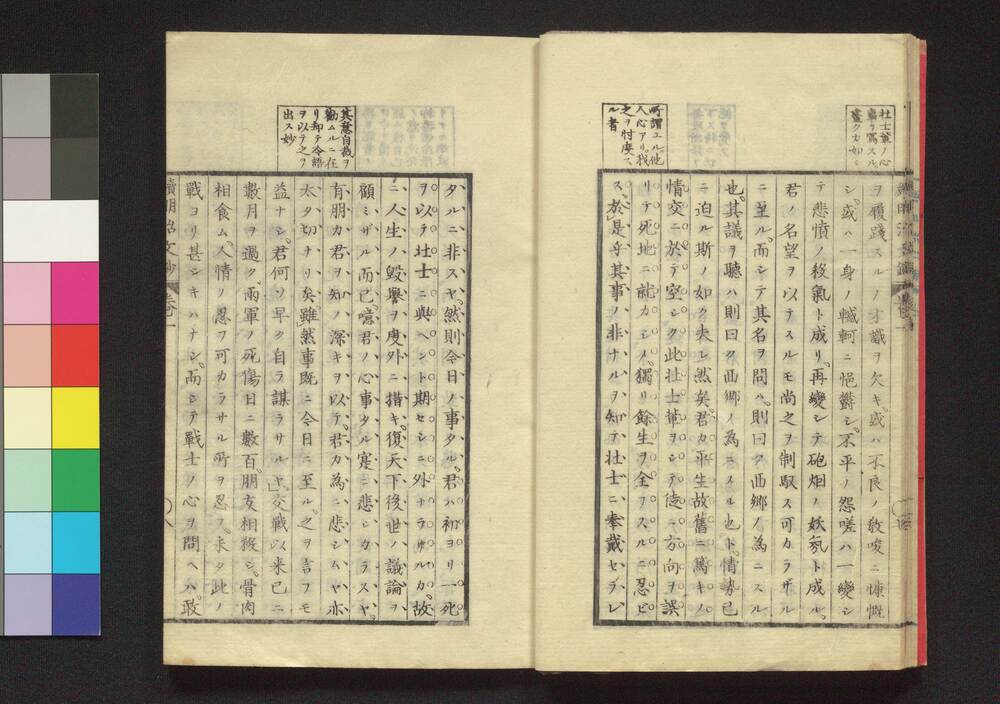 壮士輩ノ心
事ヲ寫スル
盡ク如シ
所謂ユル他
人心アリ我
之ヲ忖度ス
ル者
ヲ履践スルノ才識ヲ欠キ或ハ不良ノ教唆ニ慷慨
シ或ハ一身ノ轗軻ニ悒欝シ不平ノ怨嗟ハ一變シ
テ悲憤ノ殺氣ト成リ再變シテ砲烟ノ妖氛ト成ル
君ノ名望ヲ以テスルモ尚之ヲ制馭ス可カラザル
ニ至ル而シテ其名ヲ問ハ則曰ク西郷ノ為ニスル
也其議ヲ聽ハ則曰ク西郷ノ為ニスル也ト情勢已
ニ迫ル斯ノ如ク夫レ然矣君カ平生故舊ニ篤キノ
情交ニ於テ空シク此壮士輩ヲシテ徒ニ方向ヲ誤
リテ死地ニ就カシメ獨リ餘生ヲ全フスルニ忍ビ
ス於是乎其事ノ非ナルヲ知テ壮士ニ奉戴セラレ
其意自裁ヲ
勸ムルニ在
リ却テ冷語
ヲ以テ之ヲ
出ス妙
タルニ非スヤ然則今日ノ事タル君ハ初ヨリ一死
ヲ以テ壮士ニ與ヘント期セシニ外ナラサルカ故
ニ人生ノ毀譽ヲ度外ニ措キ復天下後世ノ議論ヲ
顧ミザル而已噫君ノ心事タル寔ニ悲シカラスヤ
有朋カ君ヲ知ノ深キヲ以テ君カ為ニ悲シムヤ亦
太タ切ナリ矣雖然事既ニ今日ニ至ル之ヲ言フモ
益ナシ君何ソ早ク自ラ謀ラサルヤ交戰以来已ニ
數月ヲ過ク兩軍ノ死傷日ニ數百朋友相殺シ骨肉
相食ム人情ノ忍フ可カラサル所ヲ忍フ未タ此ノ
戰ヨリ甚シキハナシ而シテ戰士ノ心ヲ問ヘハ敢